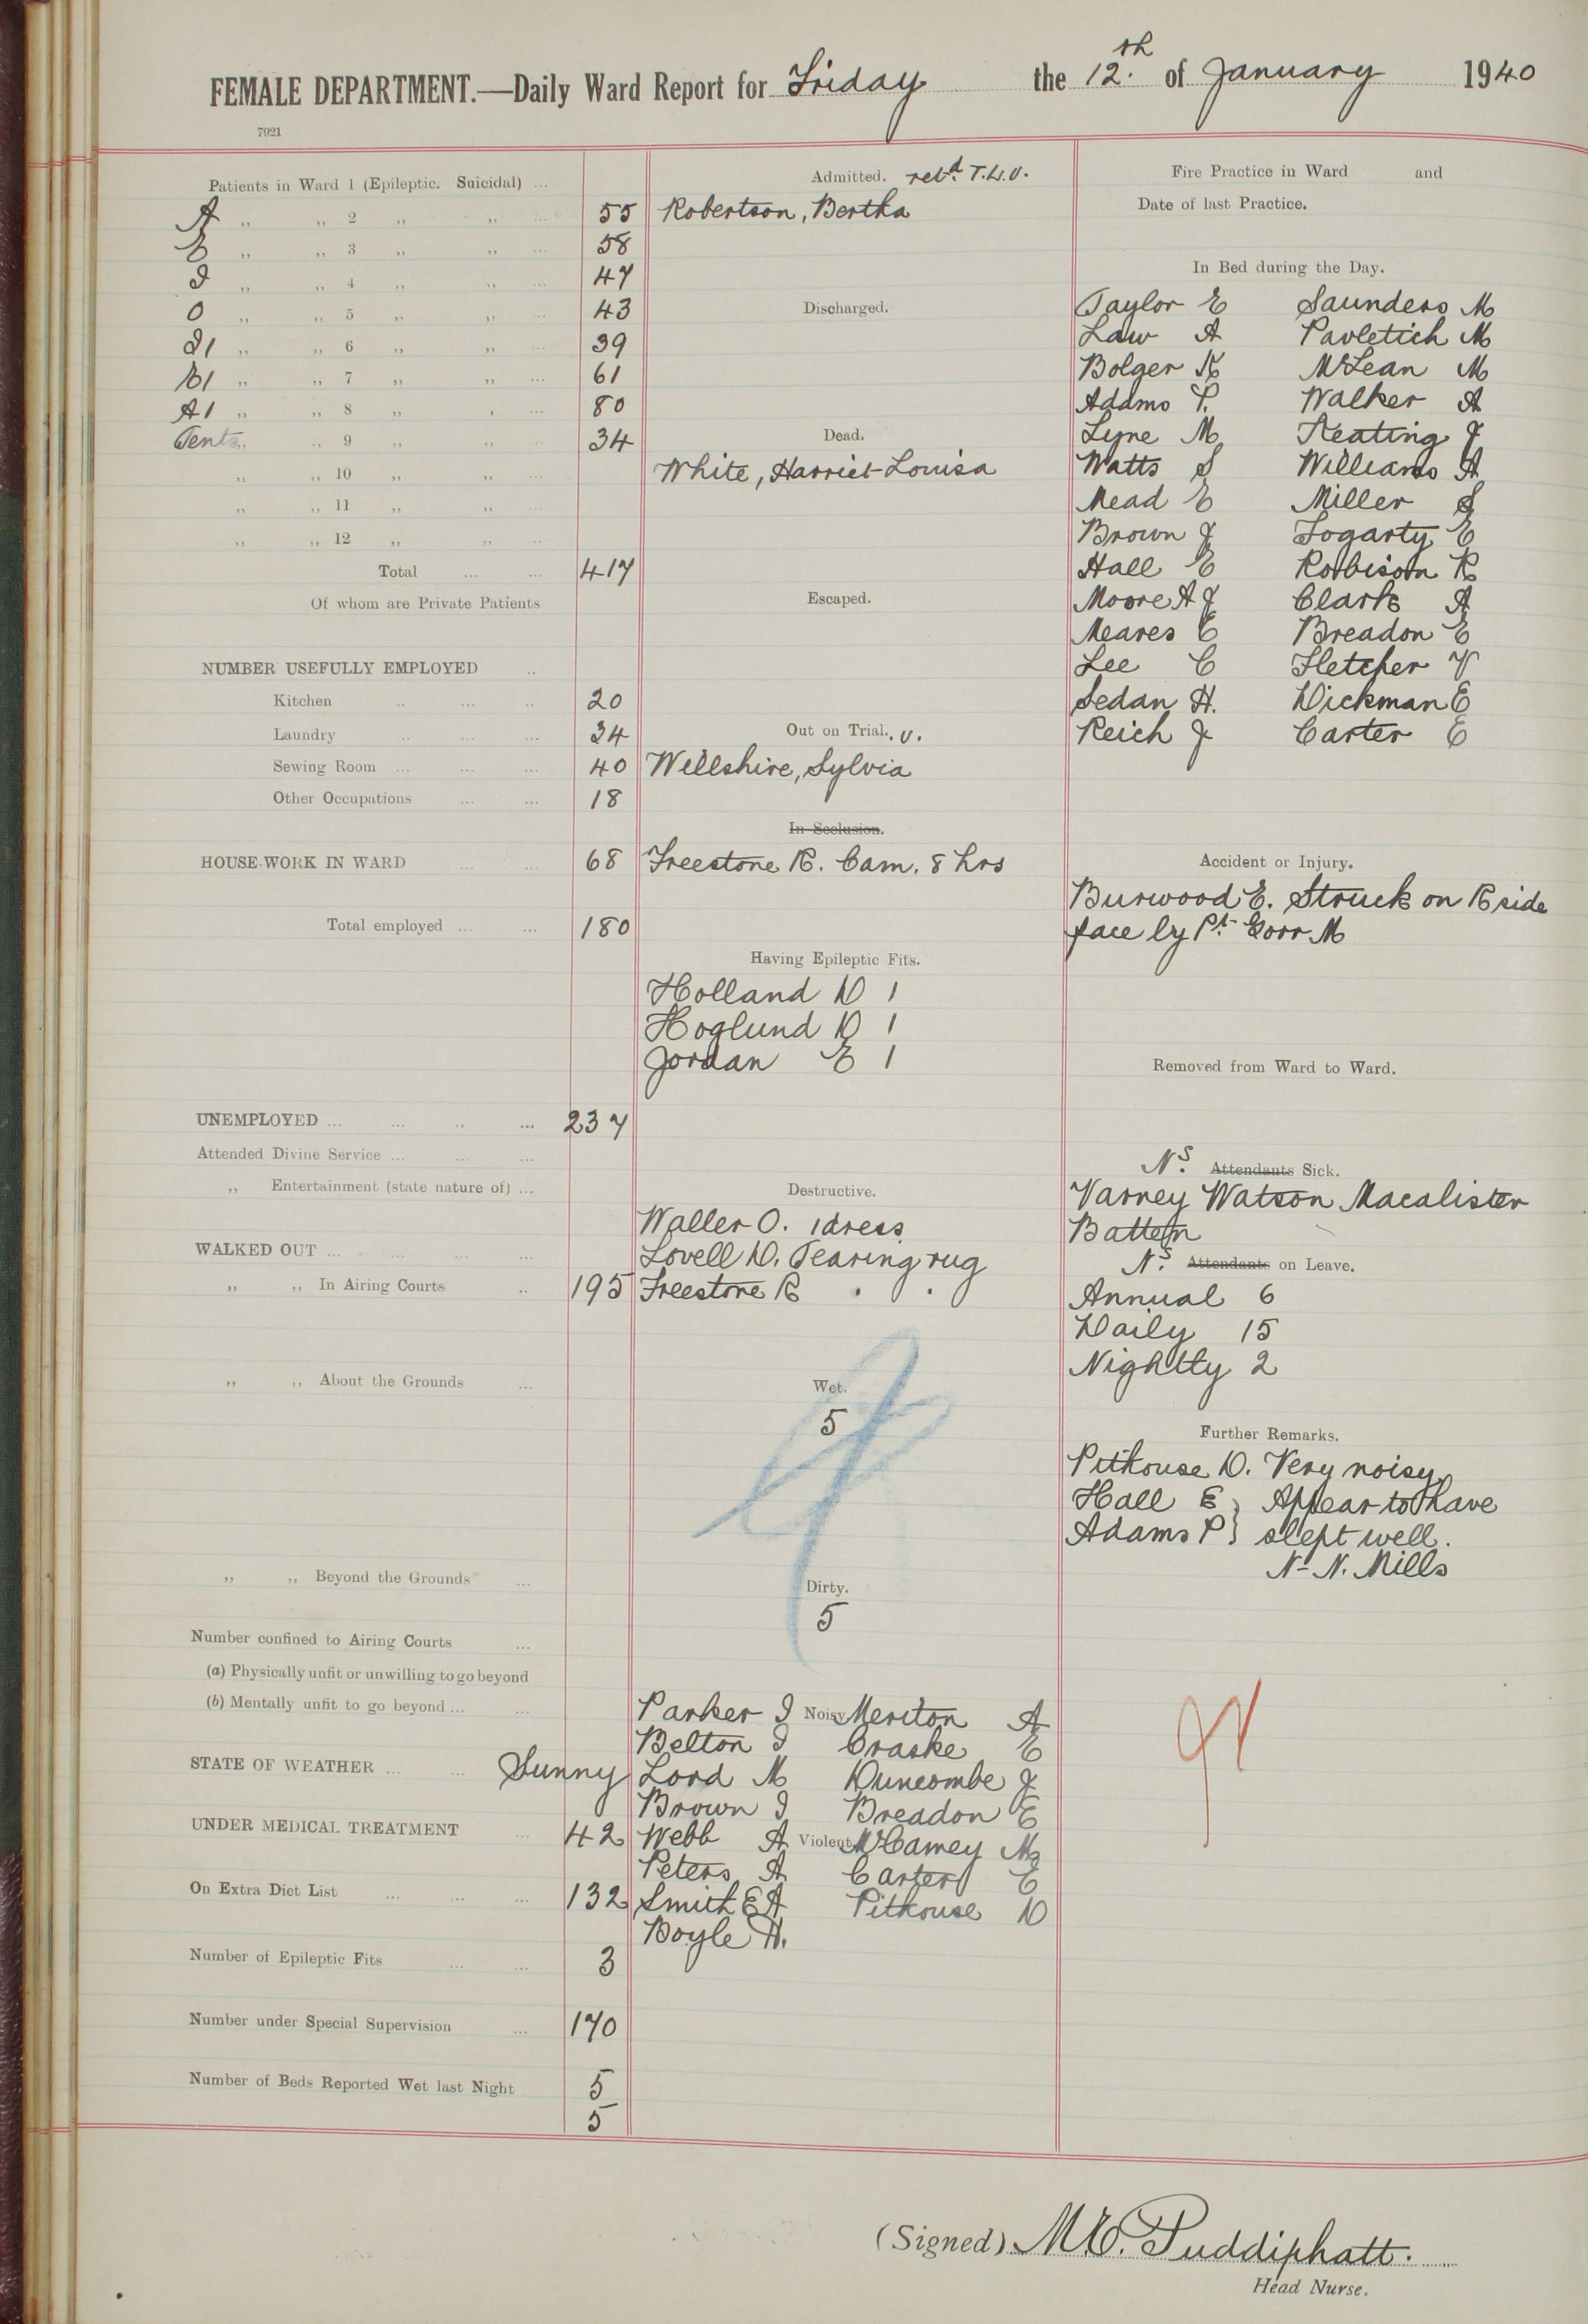 FEMALE DEPARTMENT.—Daily Ward Report for Friday the 12th of January 1940
7921
Patients in Ward 1 (Epileptic. Suicidal) ...
A „ „ 2 „ „ ... 55
E „ „ 3 „ „ ... 58
I „ „ 4 „ „ ... 47
O „ „ 5 „ „ ... 43
I1 „ „ 6 „ „ ... 39
E1 „ „ 7 „ „ ... 61
A1 „ „ 8 „ „ ... 80
Tents „ „ 9 „ „ ... 34
„ „ 10 „ „ ...
„ „ 11 „ „ ...
„ „ 12 „ „ ...
Total ... ... 417
Of whom are Private Patients
NUMBER USEFULLY EMPLOYED ..
Kitchen .. ... .. 20
Laundry ... ... ... 34
Sewing Room ... ... ... 40
Other Occupations ... ... 18
HOUSE-WORK IN WARD ... ... 68
Total employed ... ... 180
UNEMPLOYED ... ... .. ... 237
Attended Divine Service ... ... ...
„ Entertainment (state nature of) ...
WALKED OUT ... ... ... ...
„ „ In Airing Courts .. 195
„ „ About the Grounds ...
„ „ Beyond the Grounds ...
Number confined to Airing Courts ...
(a) Physically unfit or unwilling to go beyond
(b) Mentally unfit to go beyond ... ...
STATE OF WEATHER ... ... Sunny
UNDER MEDICAL TREATMENT ... 42
On Extra Diet List ... ... ... 132
Number of Epileptic Fits ... ... 3
Number under Special Supervision ... 170
Number of Beds Reported Wet last Night 5
5
Admitted. retd. T.L.V.
Robertson, Bertha
Discharged.
Dead.
White, Harriet Louisa
Escaped.
Out on Trial. V.
Willshire, Sylvia
In Seclusion.
Freestone R. Cam. 8 hrs
Having Epileptic Fits.
Holland D 1
Hoglund D 1
Jordan E 1
Destructive.
Waller O. 1 dress
Lovell D. Tearing rug
Freestone R . .
Wet.
5
Dirty.
5
Noisy
Parker I Meriton A
Belton I Craske E
Lord M Duncombe J
Brown I Breadon E
Violent
Webb A McCamey M
Peters A Carter E
Smith E A Pithouse D
Boyle H.
Fire Practice in Ward and
Date of last Practice.
In Bed during the Day.
Taylor E Saunders M
Law A Pavletich M
Bolger K McLean M
Adams P. Walker A
Lyne M Keating J
Watts S Williams A
Mead E Miller S
Brown J Fogarty E
Hall E Robison R
Moore A J Clark A
Meares E Breadon E
Lee C Fletcher V
Sedan H. Dickman E
Reich J Carter E
Accident or Injury.
Burwood E. Struck on R side
face by Pt. Gorr M
Removed from Ward to Ward.
Ns. Attendants Sick.
Varney Watson Macalister
Batten
Ns. Attendants on Leave.
Annual 6
Daily 15
Nightly 2
Further Remarks.
Pithouse D. Very noisy
Hall E } Appear to have
Adams P } slept well.
N-N. Mills
(Signed) M E. Puddiphatt.
Head Nurse.